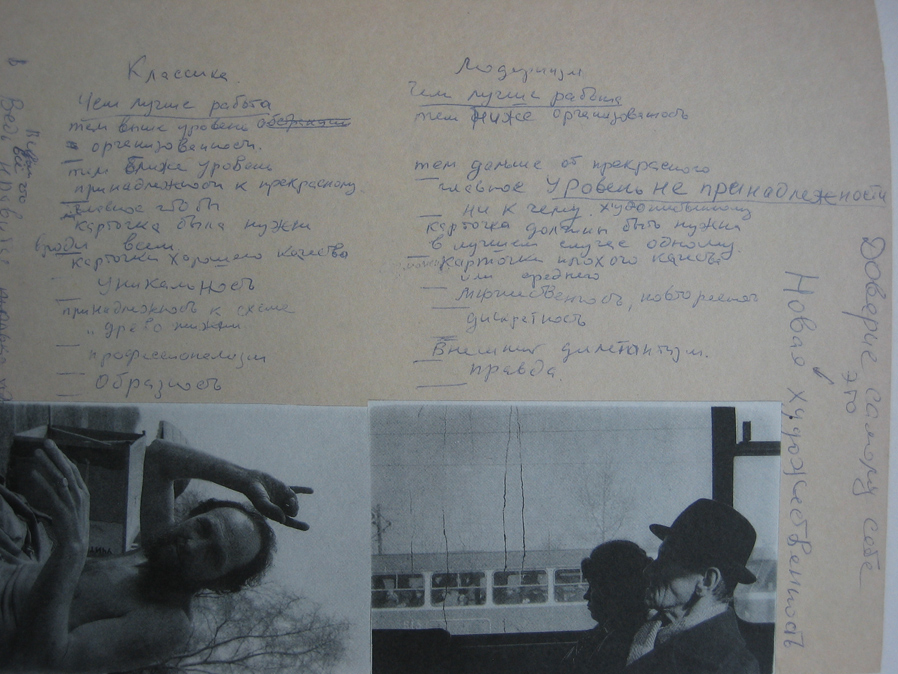 Классика.
Чем лучше работа
тем выше уровень
организованности.
тем ближе уровень
принадлежности к прекрасному.
главное чтобы
карточка была нужна
вроде всем
карточки хорошего качества
уникальность
принадлежность к схеме
"древо жизни"
профессионализм
Образность
Модернизм.
Чем лучше работа
тем ниже организованность
тем дальше от прекрасного
главное уровень не принадлежности
ни к чему художественному
карточка должна быть нужна
в лучшем случае одному.
карточки плохого качества
или среднего
множественность, повторяемость
дискретность
Внешний дилетантизм.
правда.
Доверие самому себе
это
Новая художественность